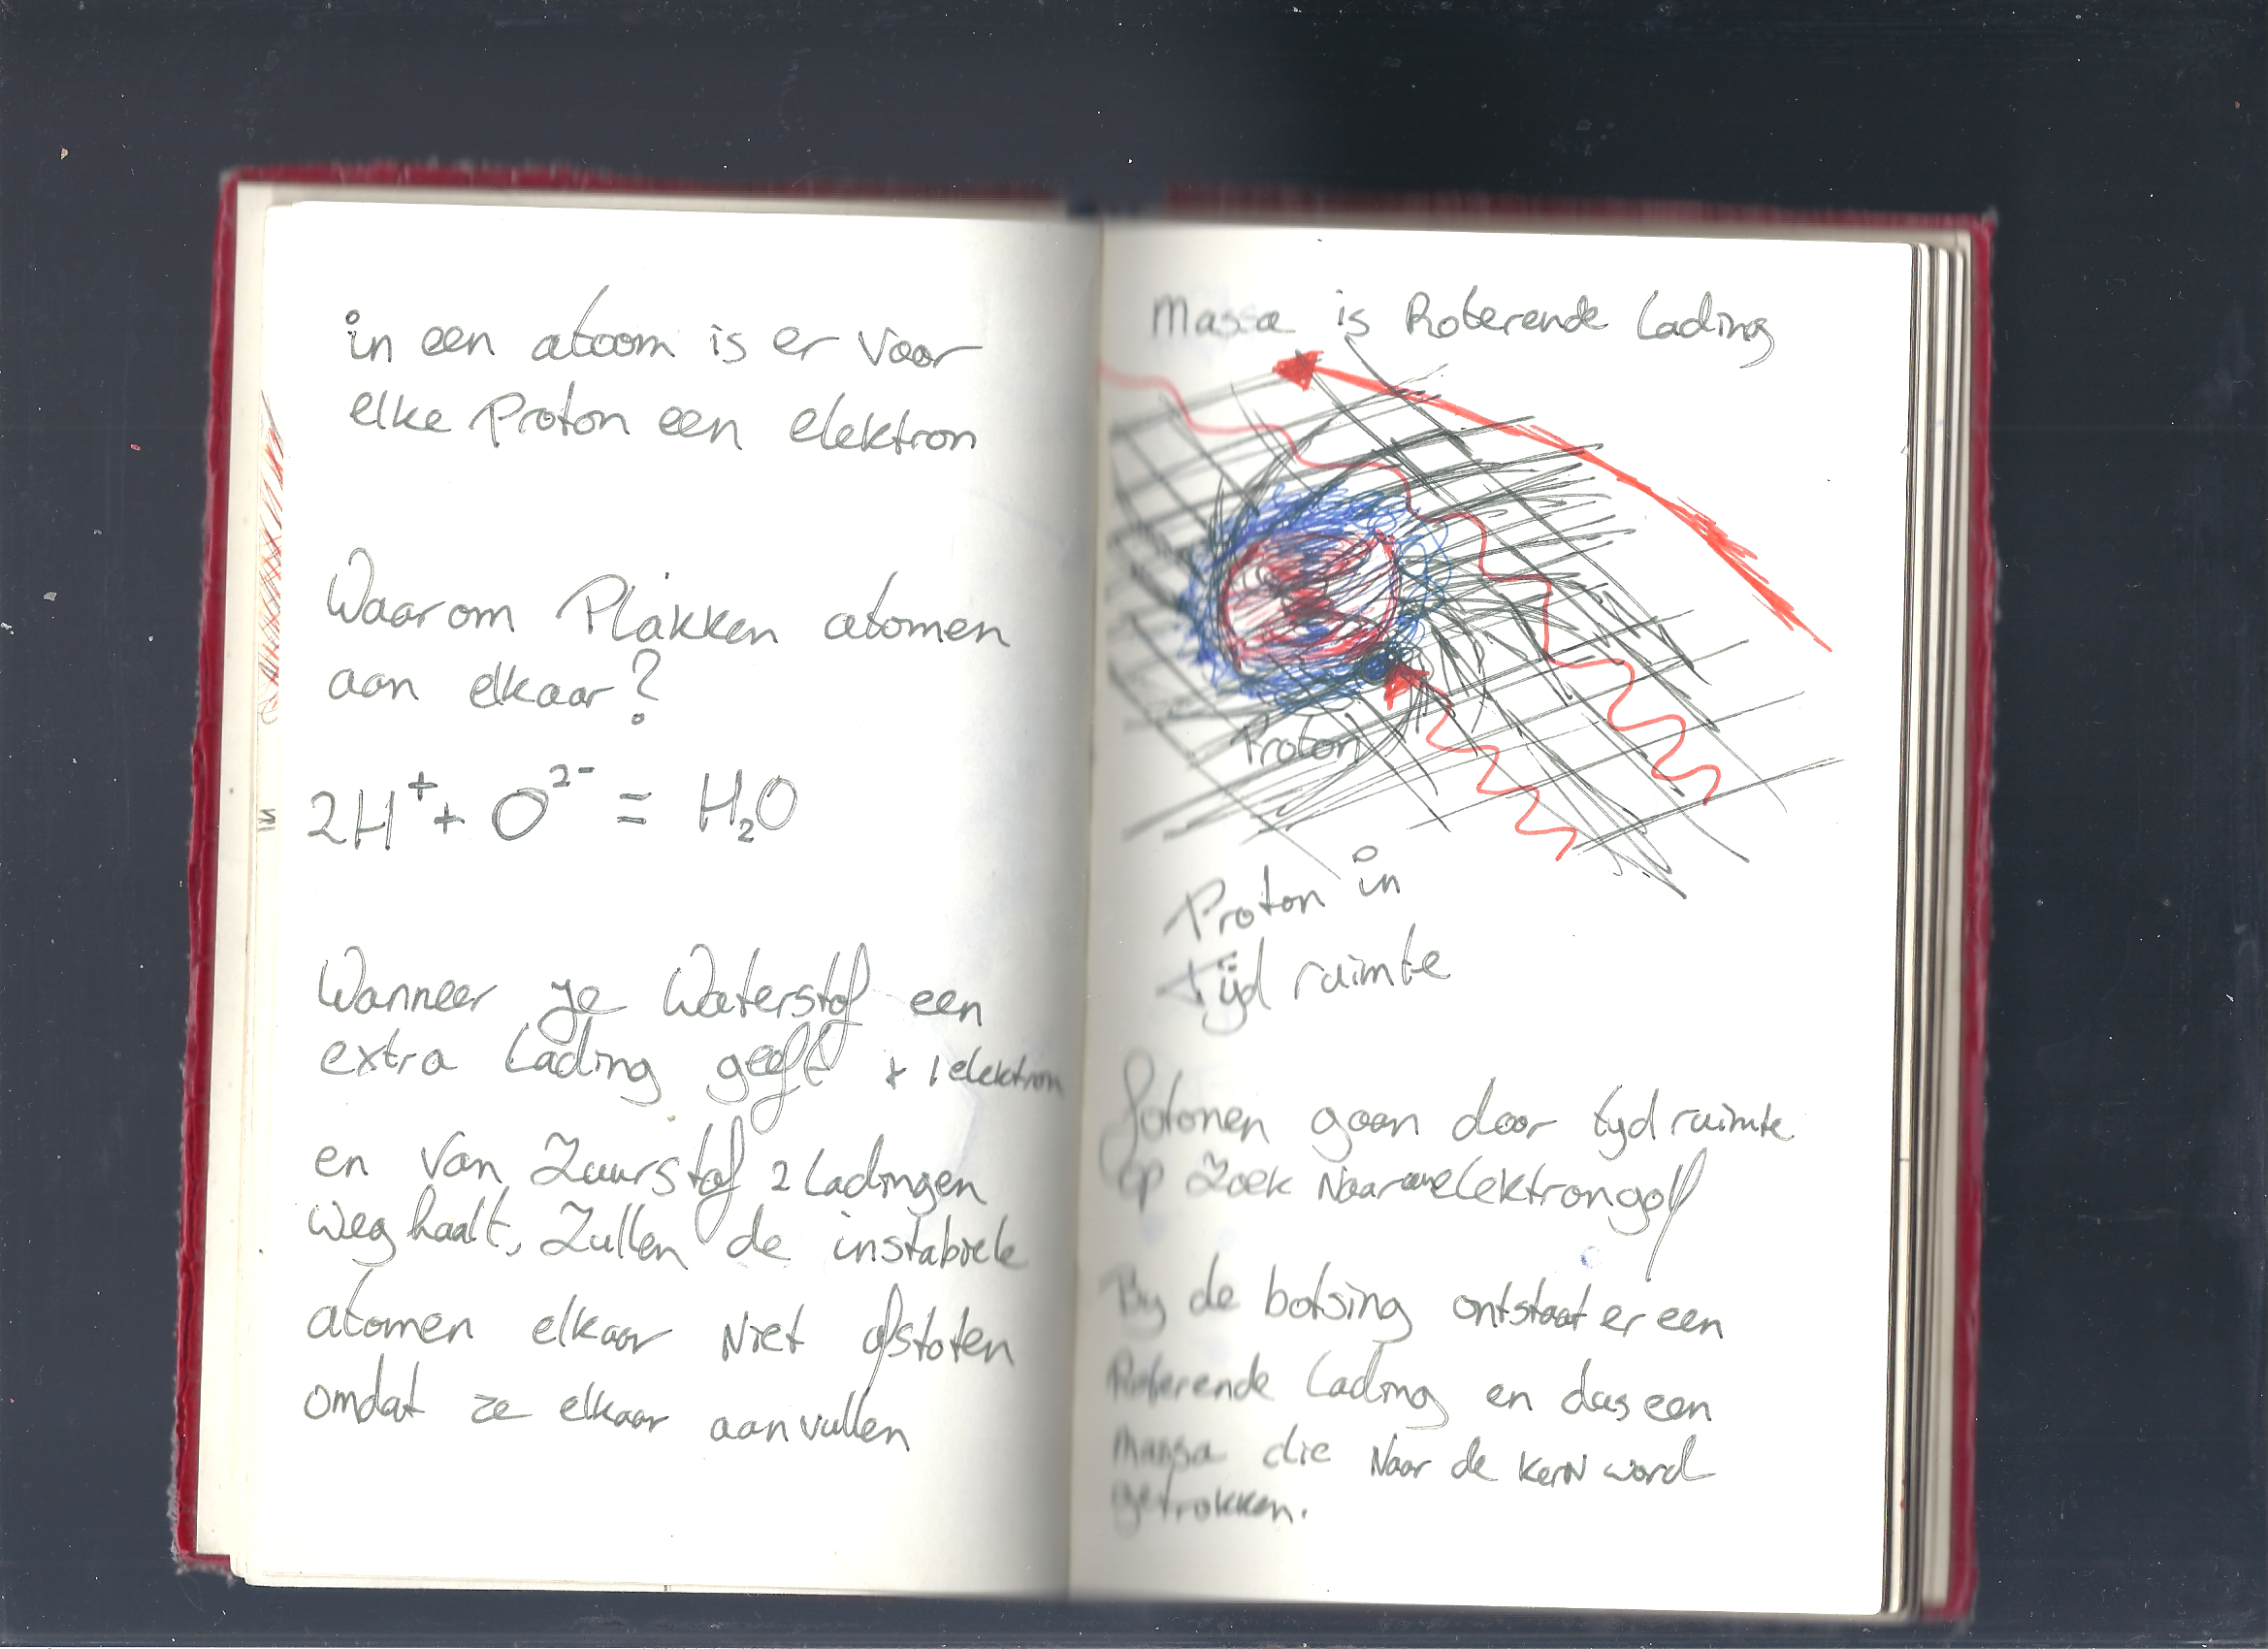 in een atoom is er voor
elke Proton een elektron
Waarom Plakken atomen
aan elkaar?
2H⁺ + O²⁻ = H₂O
Wanneer je Waterstof een
extra Lading geeft + 1 elektron
en van Zuurstof 2 Ladingen
weg haalt, Zullen de instabiele
atomen elkaar Niet afstoten
omdat ze elkaar aanvullen
Massa is Roterende Lading
Proton
Proton in
tijd ruimte
fotonen gaan door tyd ruimte
op Zoek Naar elektrongolf
By de botsing ontstaat er een
Roterende Lading en dus een
Massa die Naar de kern word
getrokken.